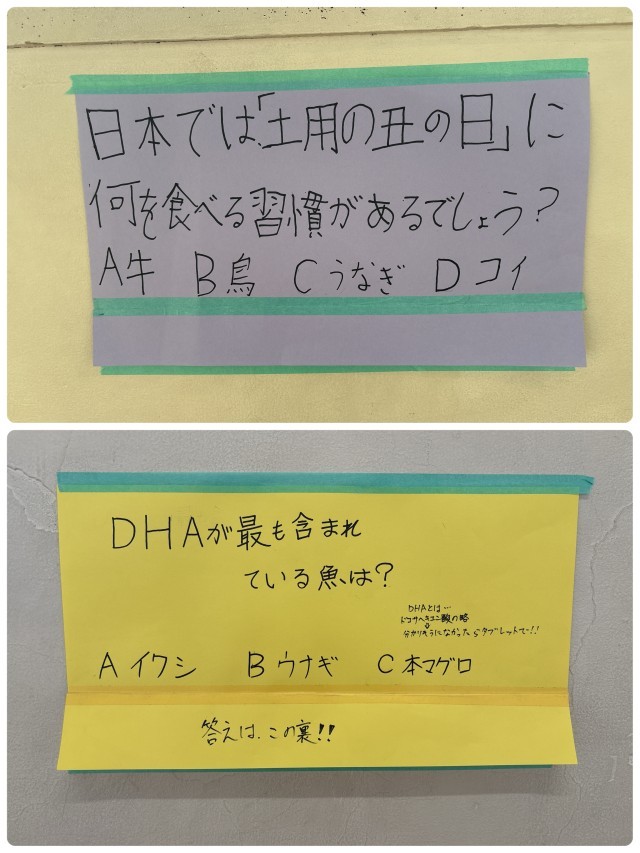 日本では「土用の丑の日」に
何を食べる習慣があるでしょう?
A牛 B鳥 Cうなぎ Dコイ
DHAが最も含まれ
ている魚は?
DHAとは…
ドコサヘキサエン酸の略
A イワシ B ウナギ C 本マグロ
答えは、この裏!!